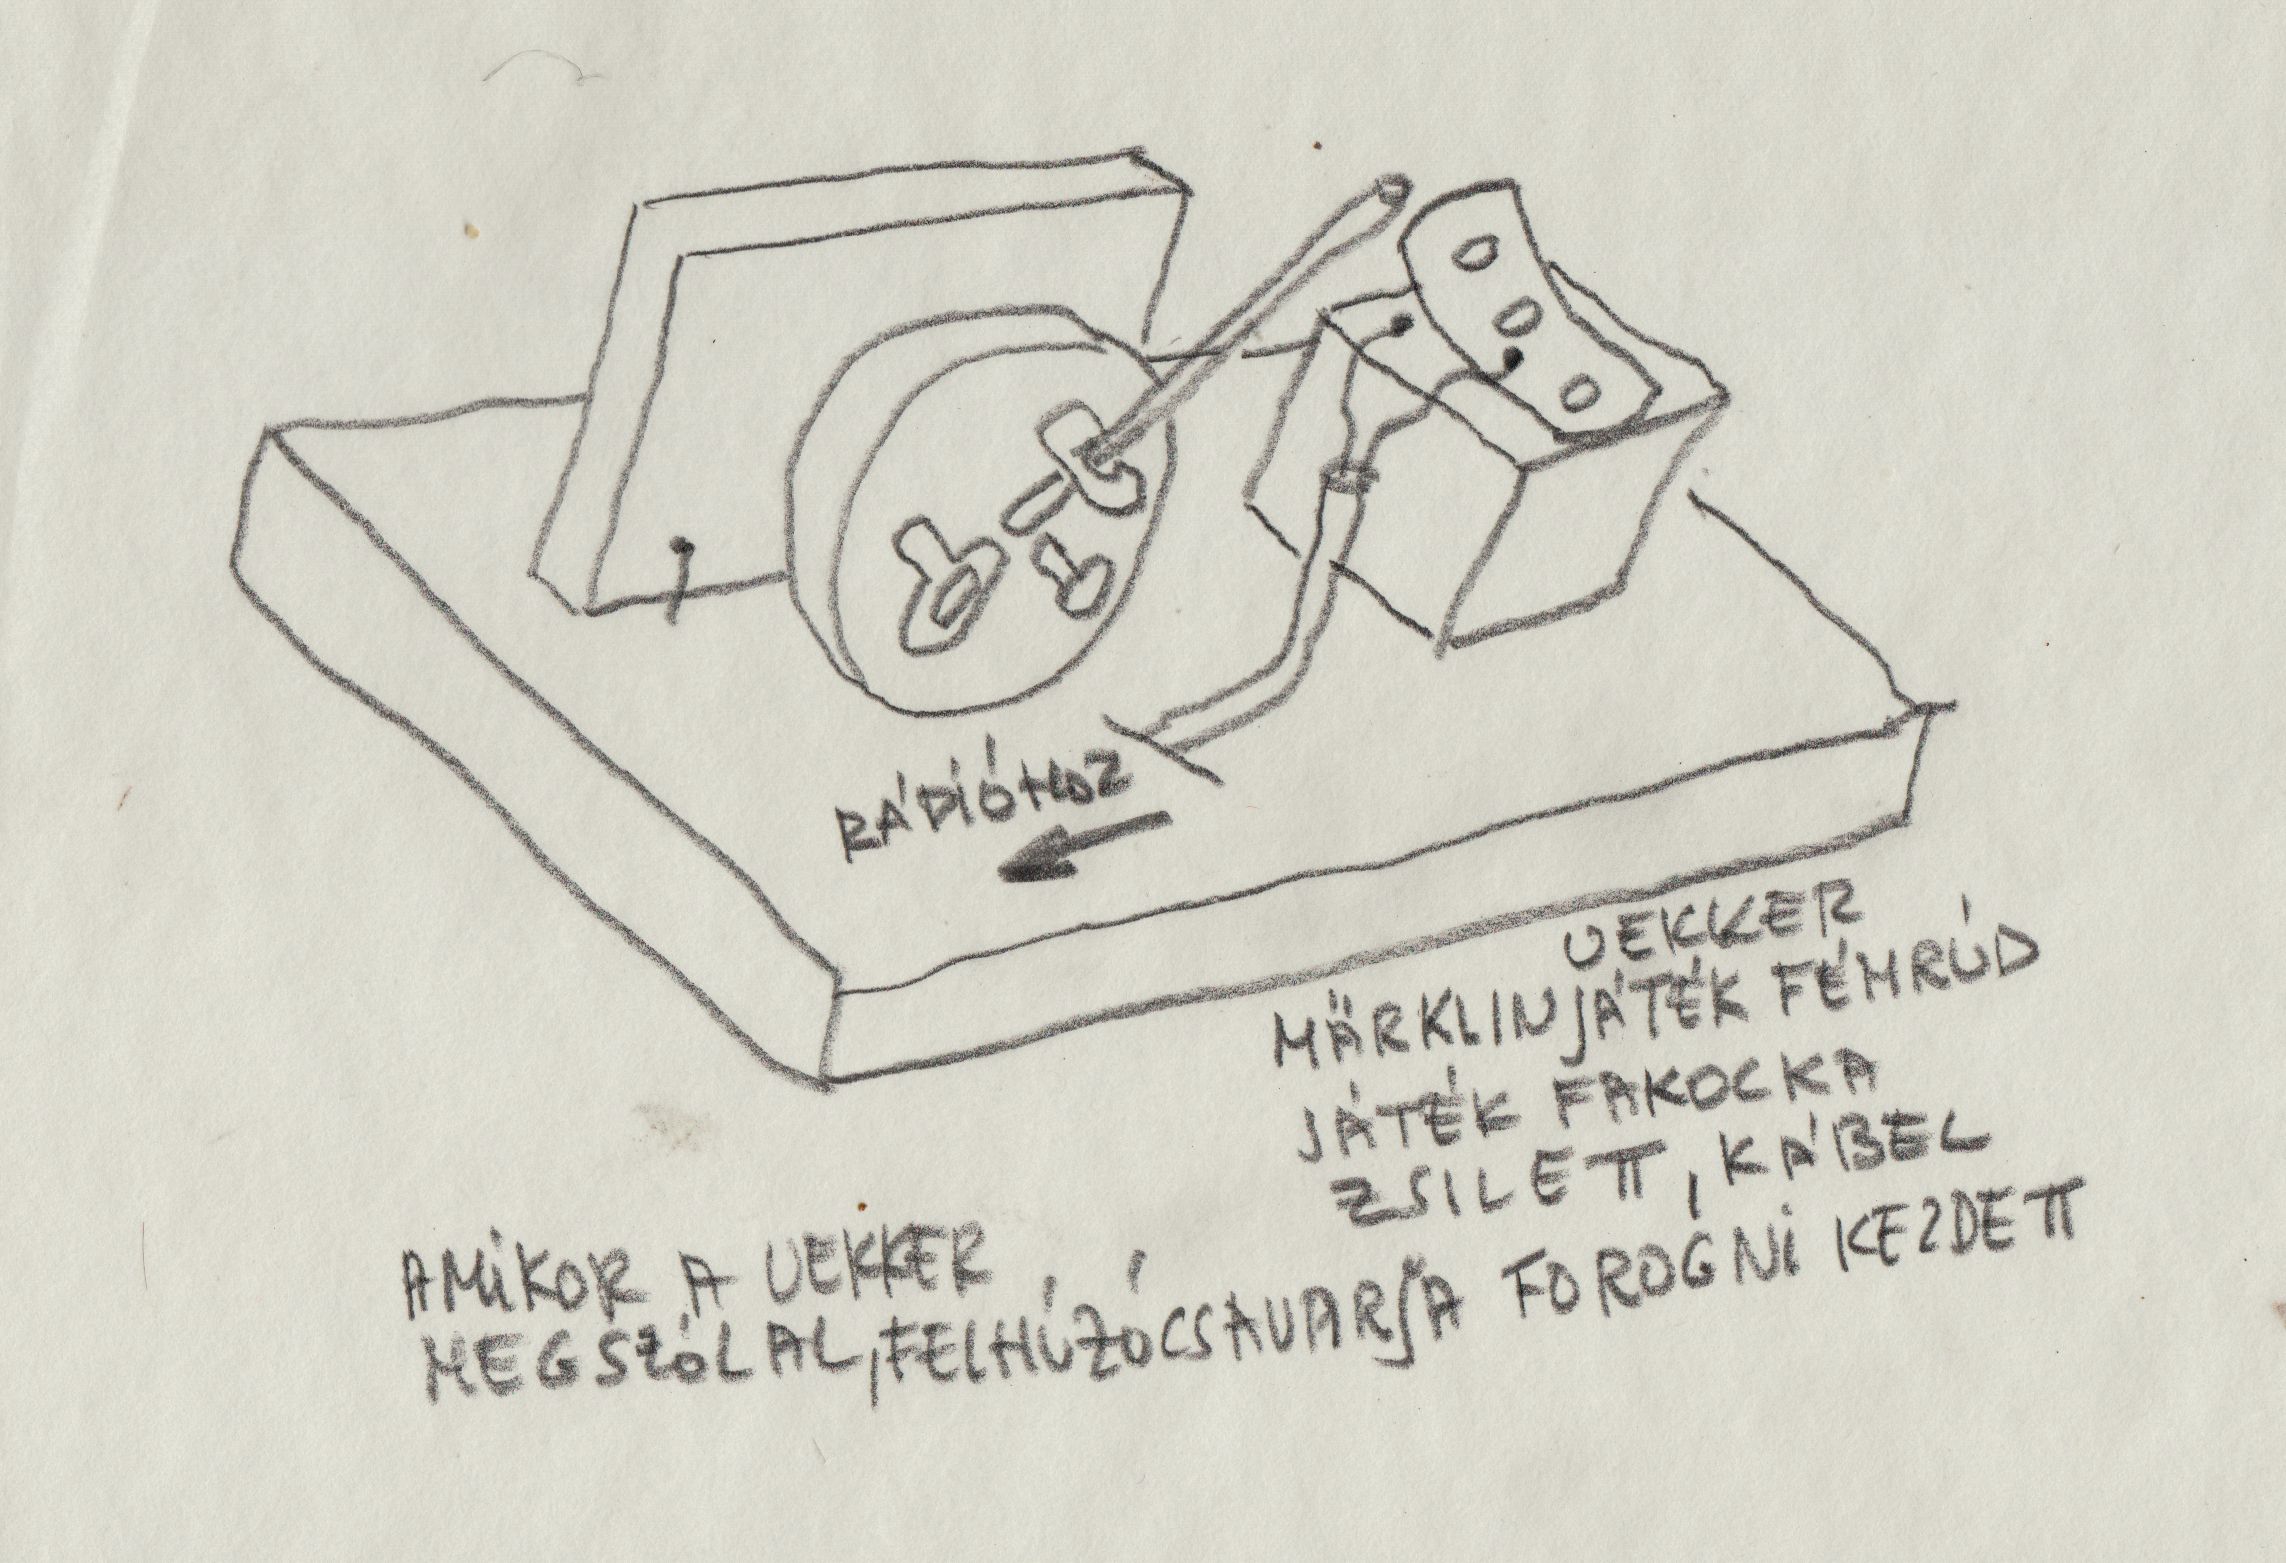 RÁDIÓHOZ
UEKKER
MÄRKLINJÁTÉK FÉMRÚD
JÁTÉK FAKOCKA
ZSILETT, KÁBEL
AMIKOR A UEKKER
MEGSZÓLAL, FELHÚZÓCSAVARJA FOROGNI KEZDETT